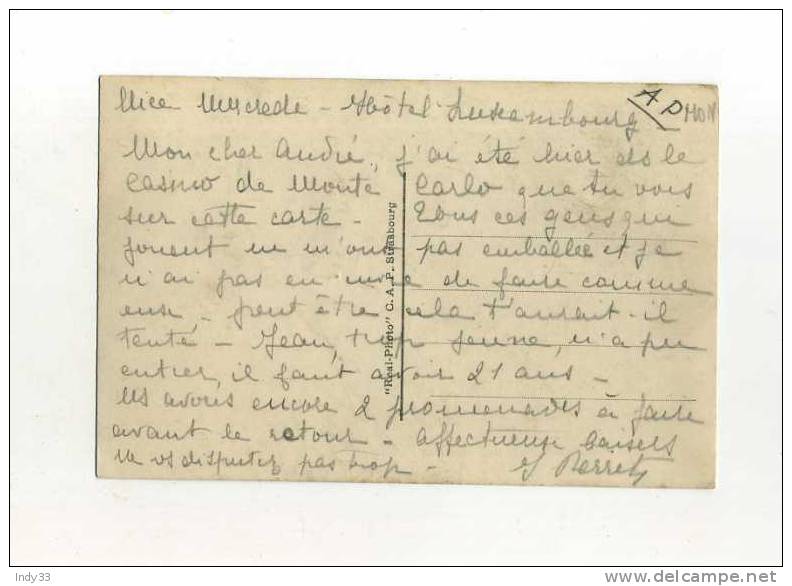 Nice Mercrede - Hôtel Luxembourg
AP MON
Mon cher André, j'ai été hier ds le
casino de Monte Carlo que tu vois
sur cette carte - Tous ces gens qui
jouent ne m'ont pas emballée et je
n'ai pas eu envie de faire comme
eux - peut être cela t'aurait-il
tenté - Jean, trop jeune, n'a pu
entrer, il faut avoir 21 ans -
Ns avons encore 2 promenades à faire
avant le retour - affectueux baisers
Ne vs disputez pas trop -
"Real-Photo" C. A. P. Strasbourg
Indy33
http://www.delcampe.net